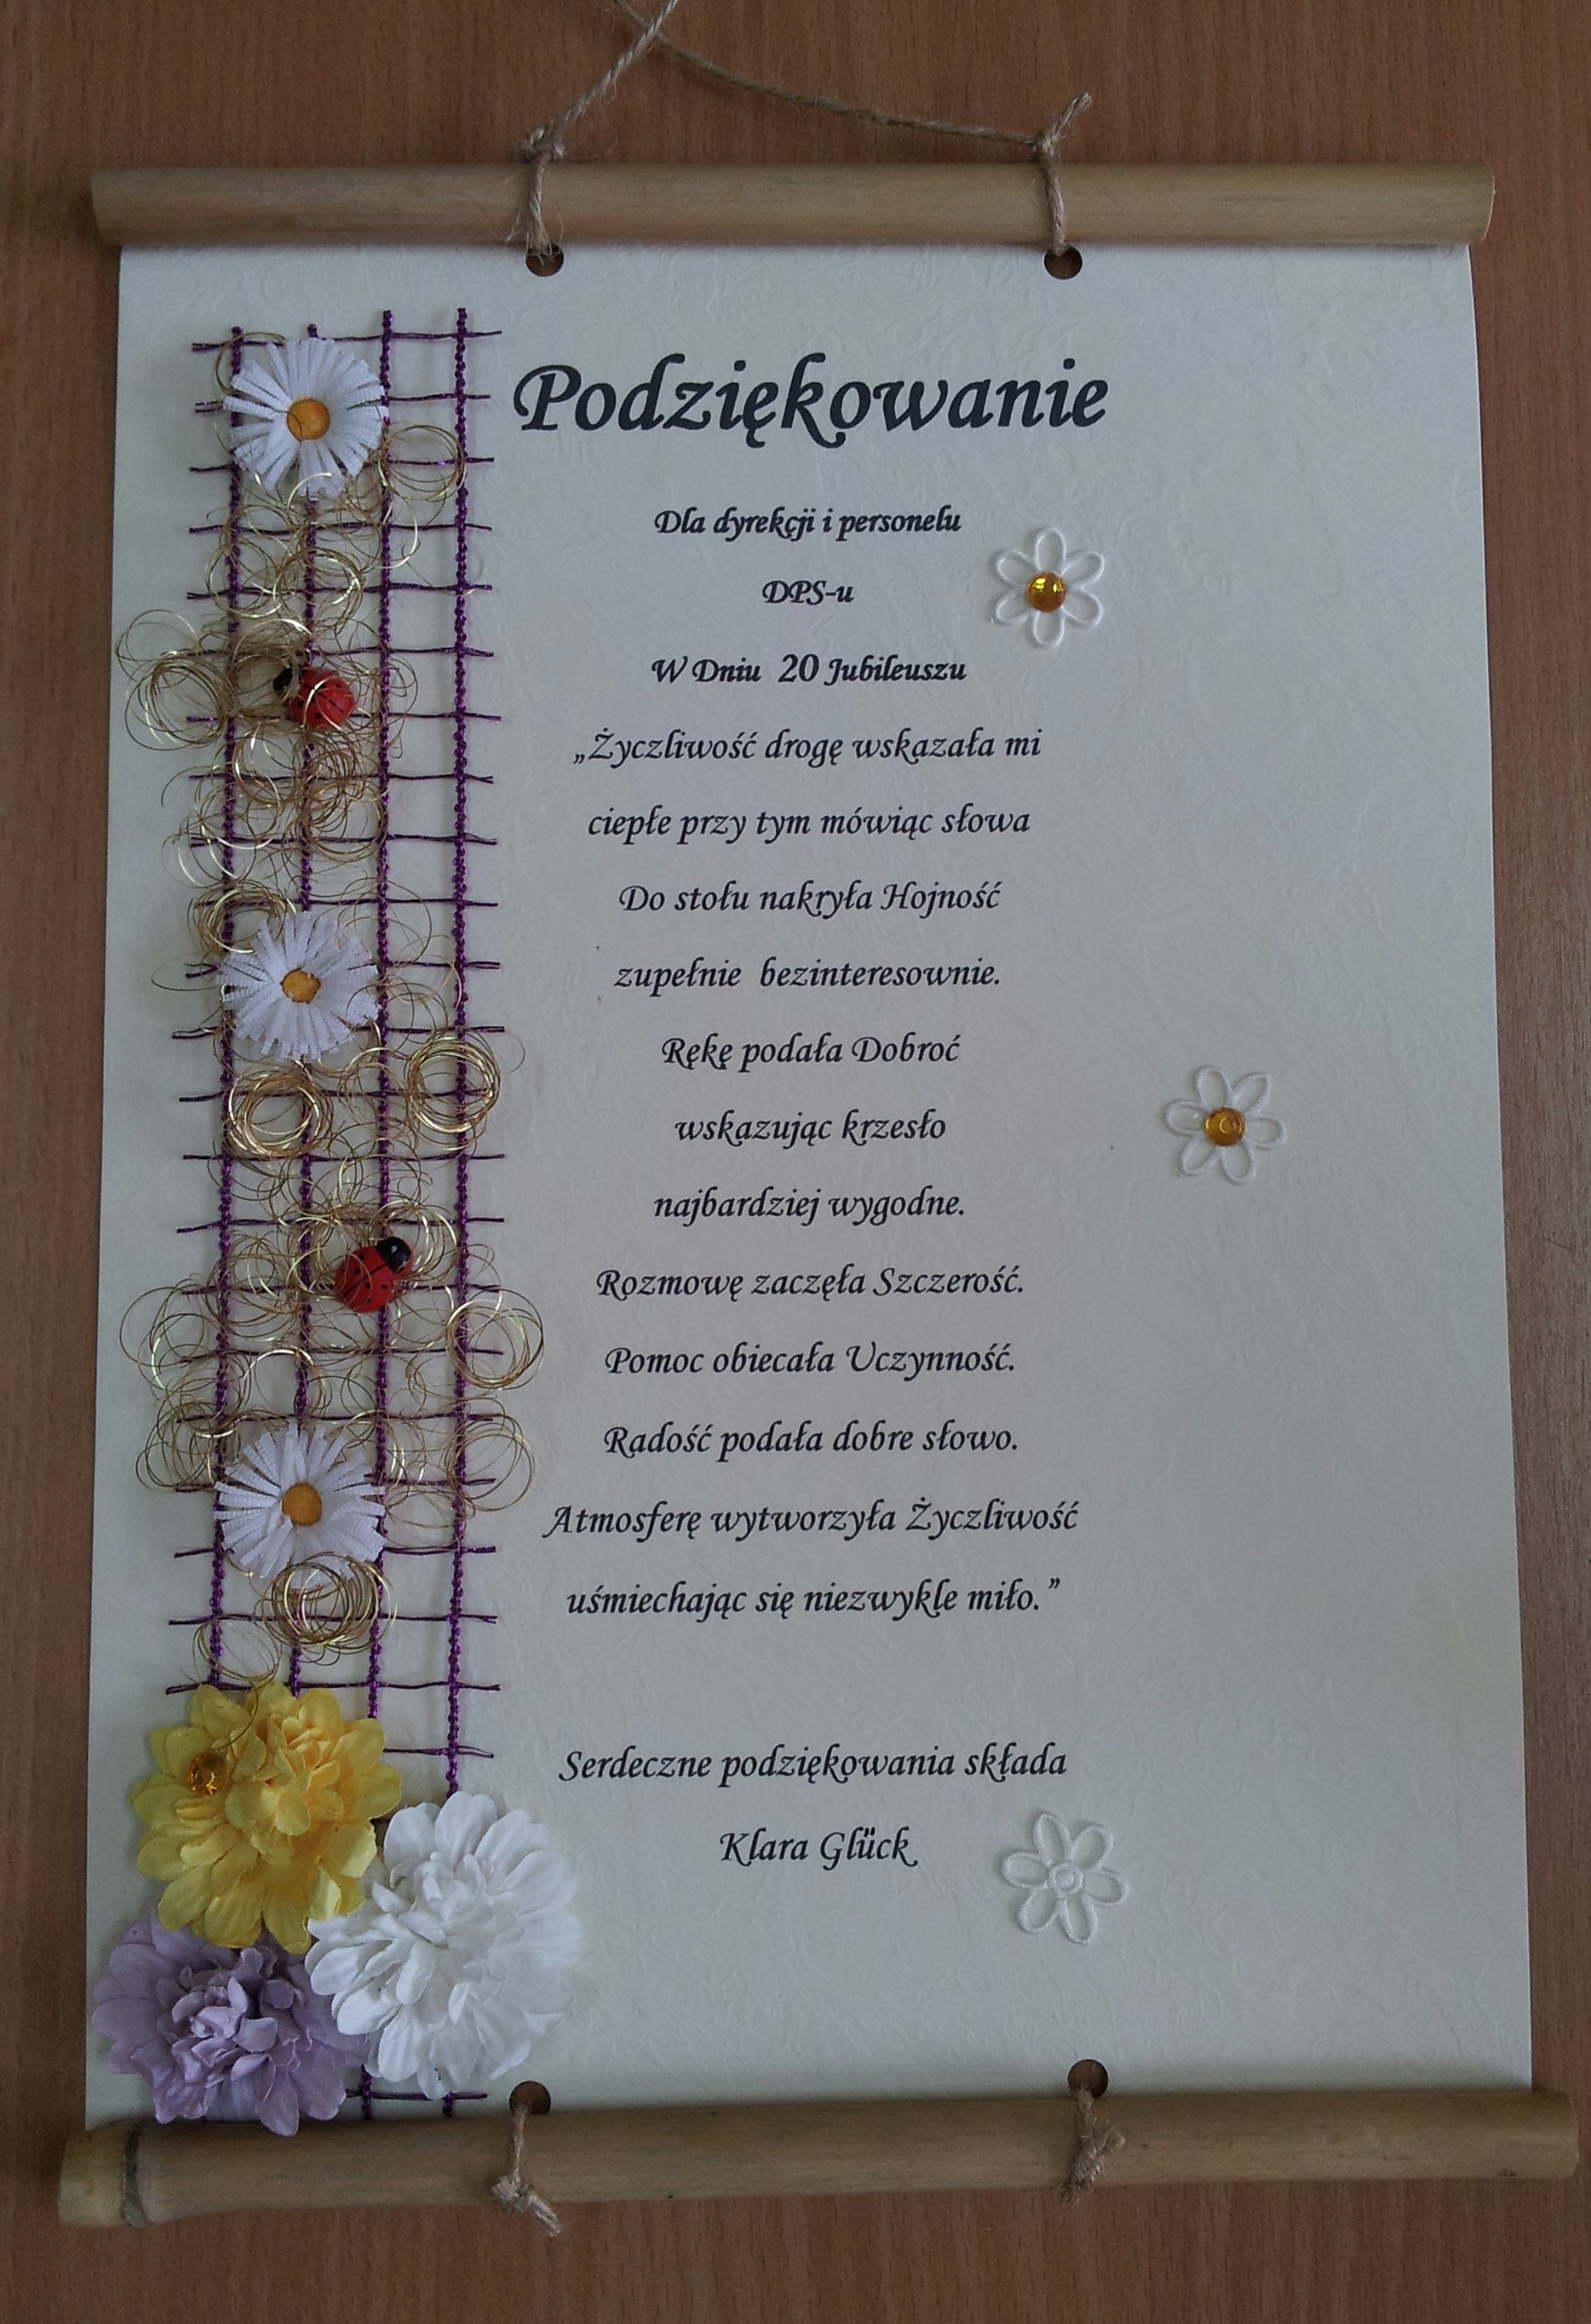 Podziękowanie
Dla dyrekcji i personelu
DPS-u
W Dniu 20 Jubileuszu
„Życzliwość drogę wskazała mi
ciepłe przy tym mówiąc słowa
Do stołu nakryła Hojność
zupełnie bezinteresownie.
Rękę podała Dobroć
wskazując krzesło
najbardziej wygodne.
Rozmowę zaczęła Szczerość.
Pomoc obiecała Uczynność.
Radość podała dobre słowo.
Atmosferę wytworzyła Życzliwość
uśmiechając się niezwykle miło.”
Serdeczne podziękowania składa
Klara Glück